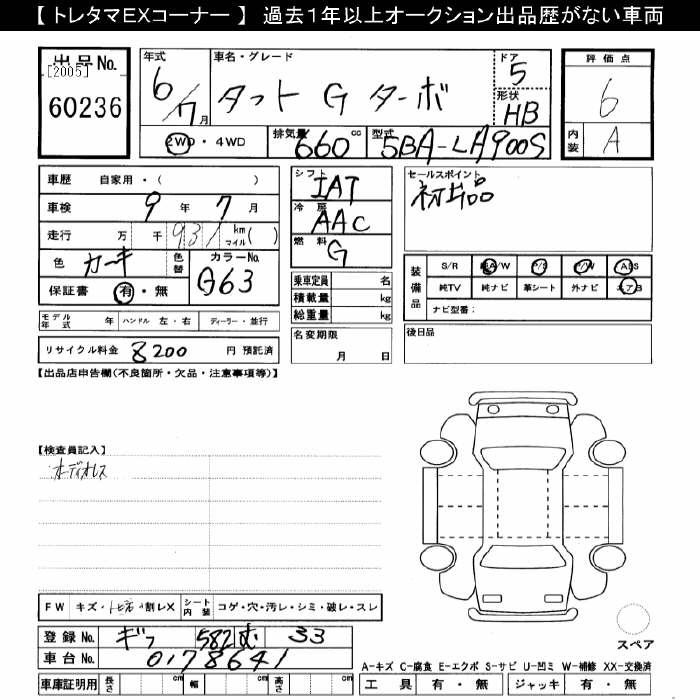 【 トレタマEXコーナー 】 過去1年以上オークション出品歴がない車両
出品No.
[2005]
60236
年式
6/7月
車名・グレード
タフト G ターボ
ドア
5
形状
HB
2WD・4WD
排気量
660 cc
型式
5BA-LA900S
評価点
6
内装
A
車歴 自家用・( )
車検 9 年 7 月
走行 万 千 931 km マイル( )
色 カーキ 色替 カラーNo. G63
保証書 有・無
シフト IAT
冷房 AAC
燃料 G
乗車定員 名
積載量 kg
総重量 kg
セールスポイント
初出品
装備品
S/R 純A/W P/S P/W ABS
純TV 純ナビ 革シート 外ナビ エアB
ナビ型番:
モデル年式 年 ハンドル 左・右 ディーラー・並行
リサイクル料金 8200 円 預託済
名変期限
月 日
後日品
【出品店申告欄(不良箇所・欠品・注意事項等)】
【検査員記入】
オーディオレス
FW キズ・トビ石・割レX シート内装 コゲ・穴・汚レ・シミ・破レ・スレ
登録No. ギフ 582 む 33
車台No. 0178641
車庫証明用 長さ cm 幅 cm 高さ cm
スペア
A-キズ C-腐食 E-エクボ S-サビ U-凹ミ W-補修 XX-交換済
工具 有・無 ジャッキ 有・無